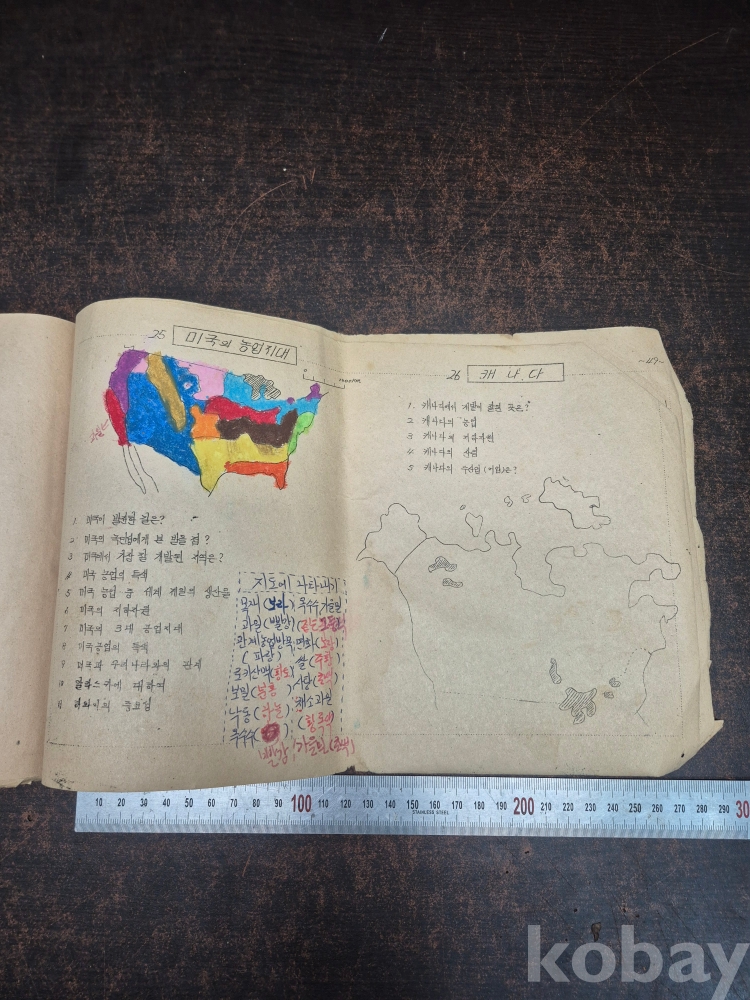 25 미국의 농업지대
1. 미국이 발견된 길은?
2 미국의 에게 본 받을 점?
3 미국에서 가장 잘 개발된 지역은?
4 미국 농업의 특색
5 미국 농업 중 세계 제일의 생산물
6 미국의 지하자원
7 미국의 3대 공업지대
8 미국공업의 특색
9 미국과 우리나라와의 관계
10 알라스카에 대하여
11 하와이의 중요점
지도에 나타내기
목재(보라) 옥수수 가을밀
과원(빨강)
관개농업방목 면화(노랑)
(파랑) 쌀(주황)
로키산맥(황토) 사탕
봄밀(분홍) 채소과원
낙농(하늘) (황록색)
옥수수
빨강 가을밀
~49~
26 캐나다
1. 캐나다에서 개발이 잘된 곳은?
2 캐나다의 농업
3 캐나다의 지하자원
4 캐나다의 산림
5 캐나다의 수산업(어업)은?
10 20 30 40 50 60 70 80 90 100 110 120 130 140 150 160 170 180 190 200 210 220 230 240 250 260 270 280 290 30
STAINLESS STEEL
kobay